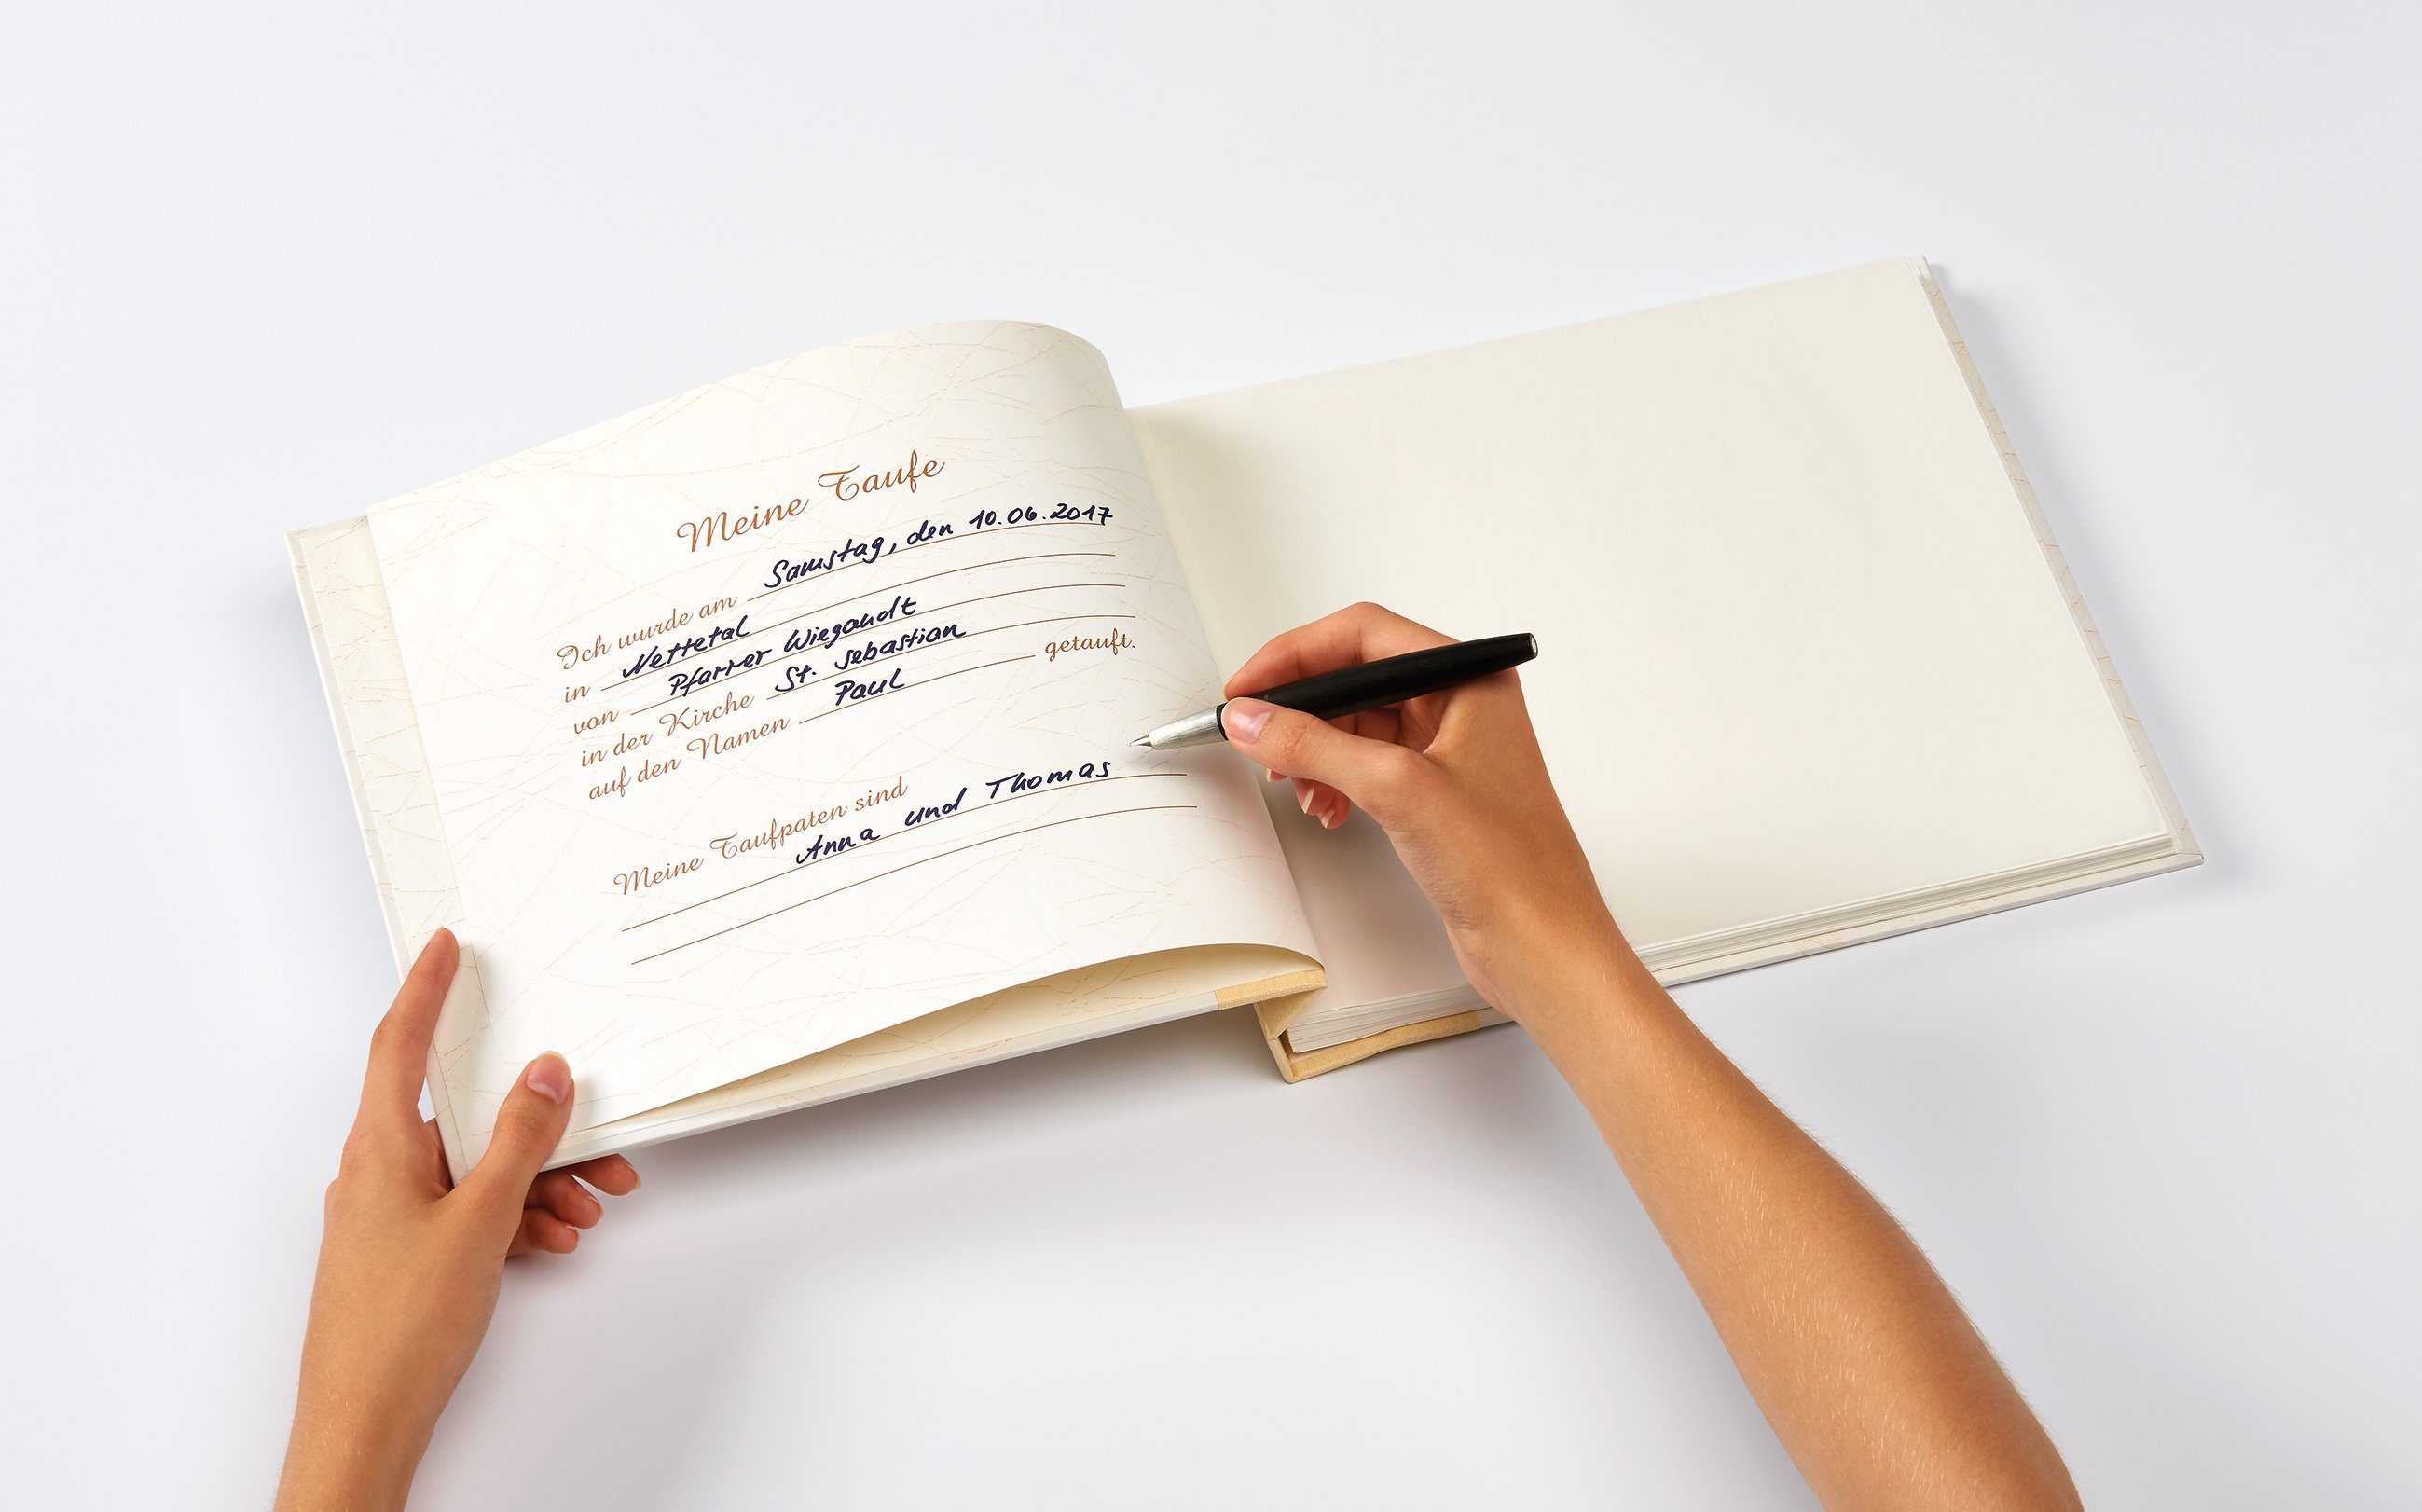 Meine Taufe
Ich wurde am Samstag, den 10.06.2017
in Nettetal
von Pfarrer Wiegandt
in der Kirche St. Sebastian
auf den Namen Paul getauft.
Meine Taufpaten sind
Anna und Thomas